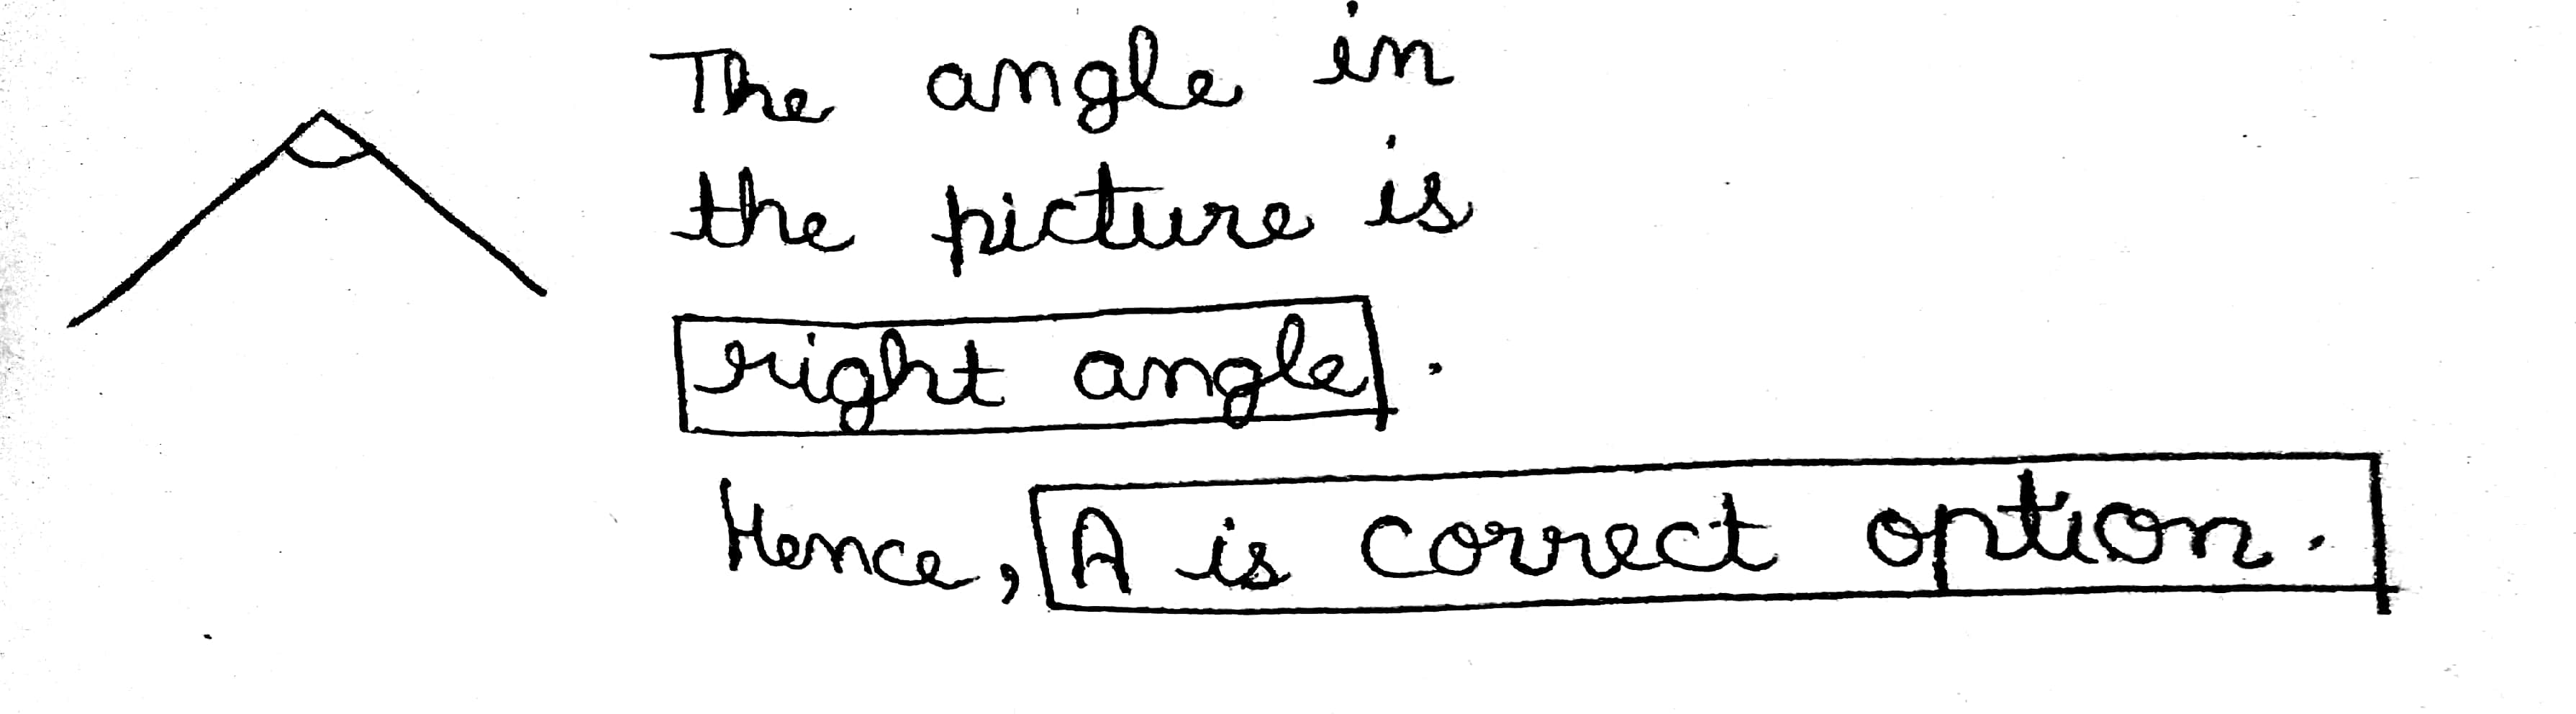 The angle in
the picture is
right angle.
Hence, A is correct option.